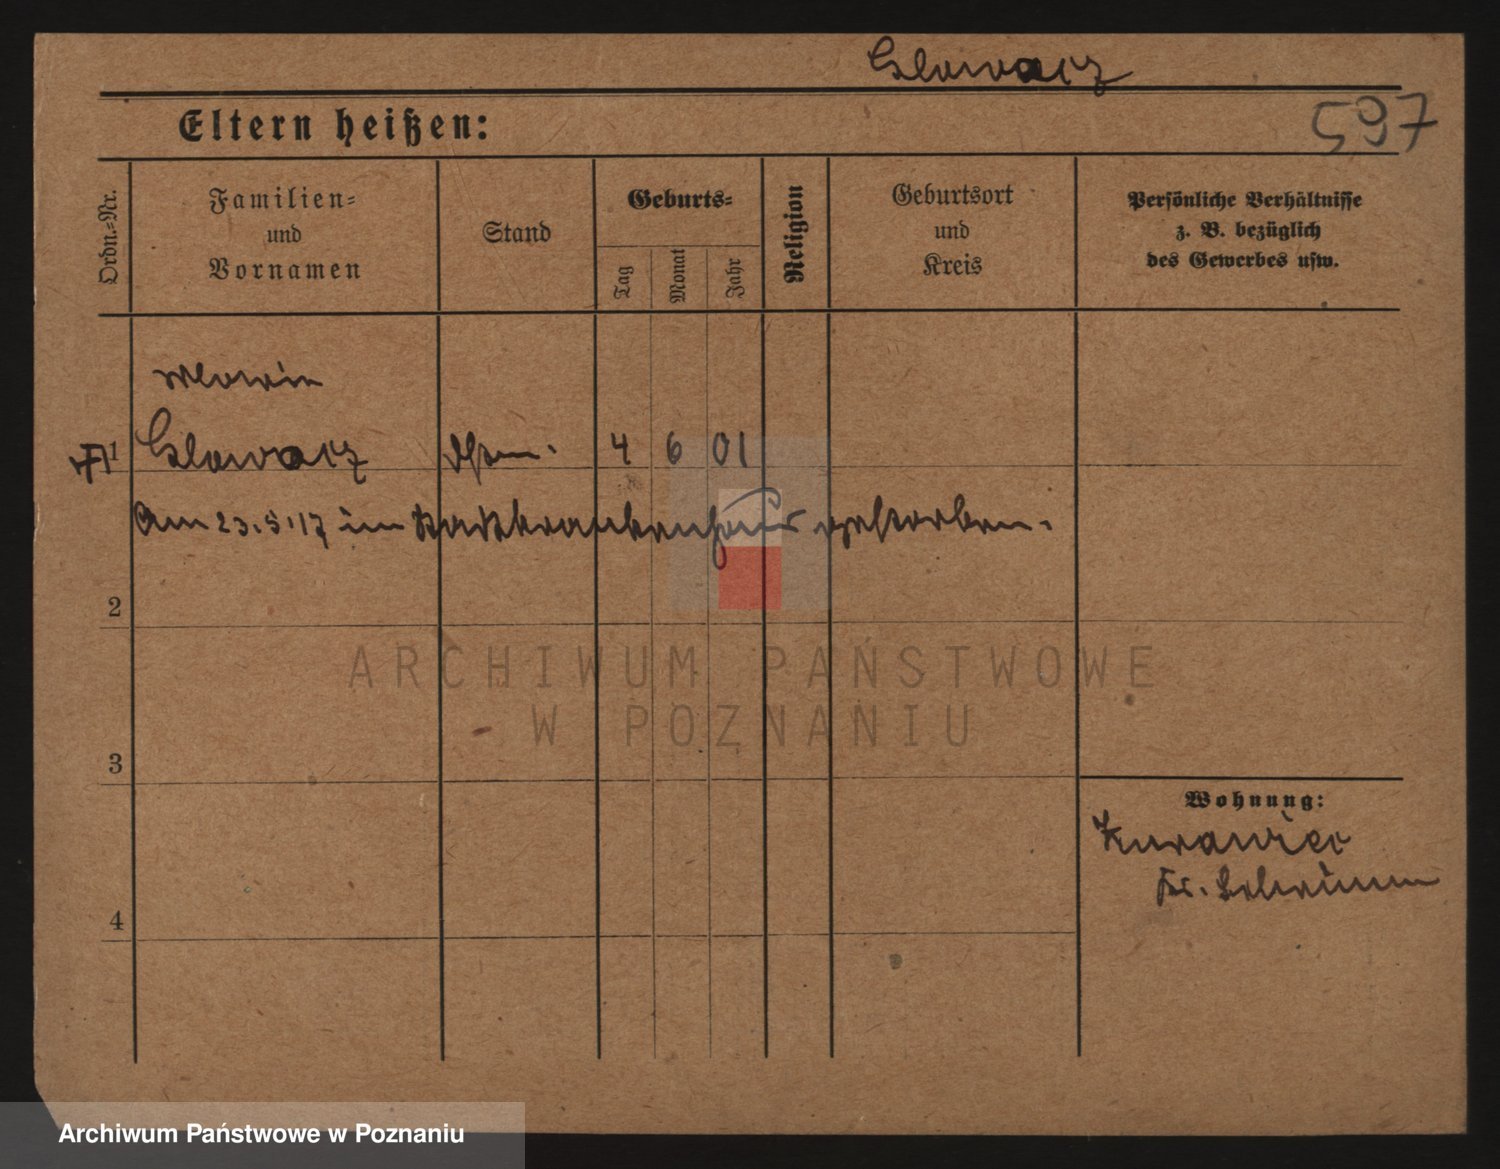 Glowacz
597
Eltern heißen:
Ordn.-Nr.
Familien-
und
Vornamen
Stand
Geburts-
Tag
Monat
Jahr
Religion
Geburtsort
und
Kreis
Persönliche Verhältnisse
z. B. bezüglich
des Gewerbes usw.
Maria
1 Glowacz 4 6 01
Am 23.5.17 im Stadtkrankenhaus gestorben.
2
3
4
Wohnung:
Murawiec
Kr.
ARCHIWUM PAŃSTWOWE
W POZNANIU
Archiwum Państwowe w Poznaniu